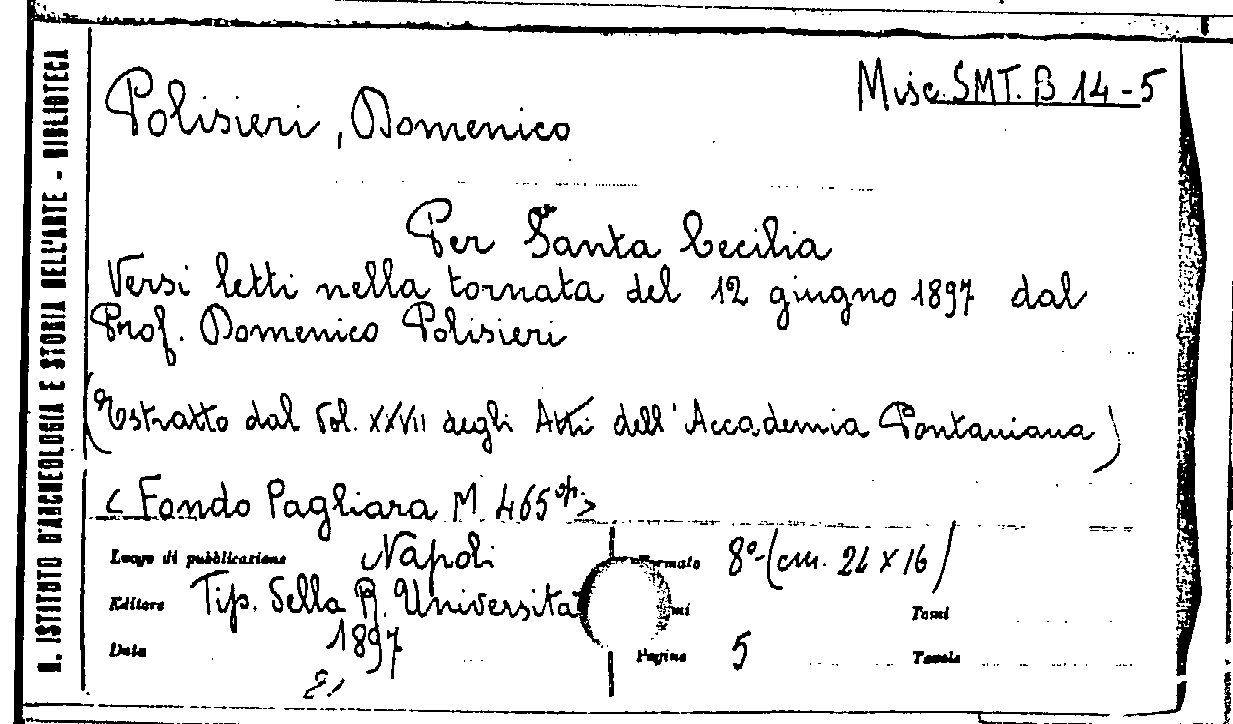 R. ISTITUTO D'ARCHEOLOGIA E STORIA DELL'ARTE - BIBLIOTECA
Misc. SMT. B 14-5
Polisieri, Domenico
Per Santa Cecilia
Versi letti nella tornata del 12 giugno 1897 dal
Prof. Domenico Polisieri
(Estratto dal Vol. XXVII degli Atti dell'Accademia Pontaniana)
<Fondo Pagliara M 465 op.>
Luogo di pubblicazione Napoli Formato 8°-(cm. 24 x 16)
Editore Tip. della R. Università Tomi
Data 1897 Pagine 5 Tavole